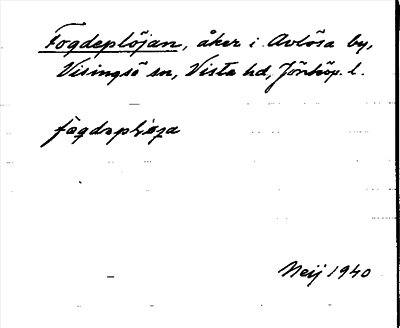 Fogdeplöjan, åker i Avlösa by,
Visingsö sn, Vista hd, Jönköp. l.
Neij 1940